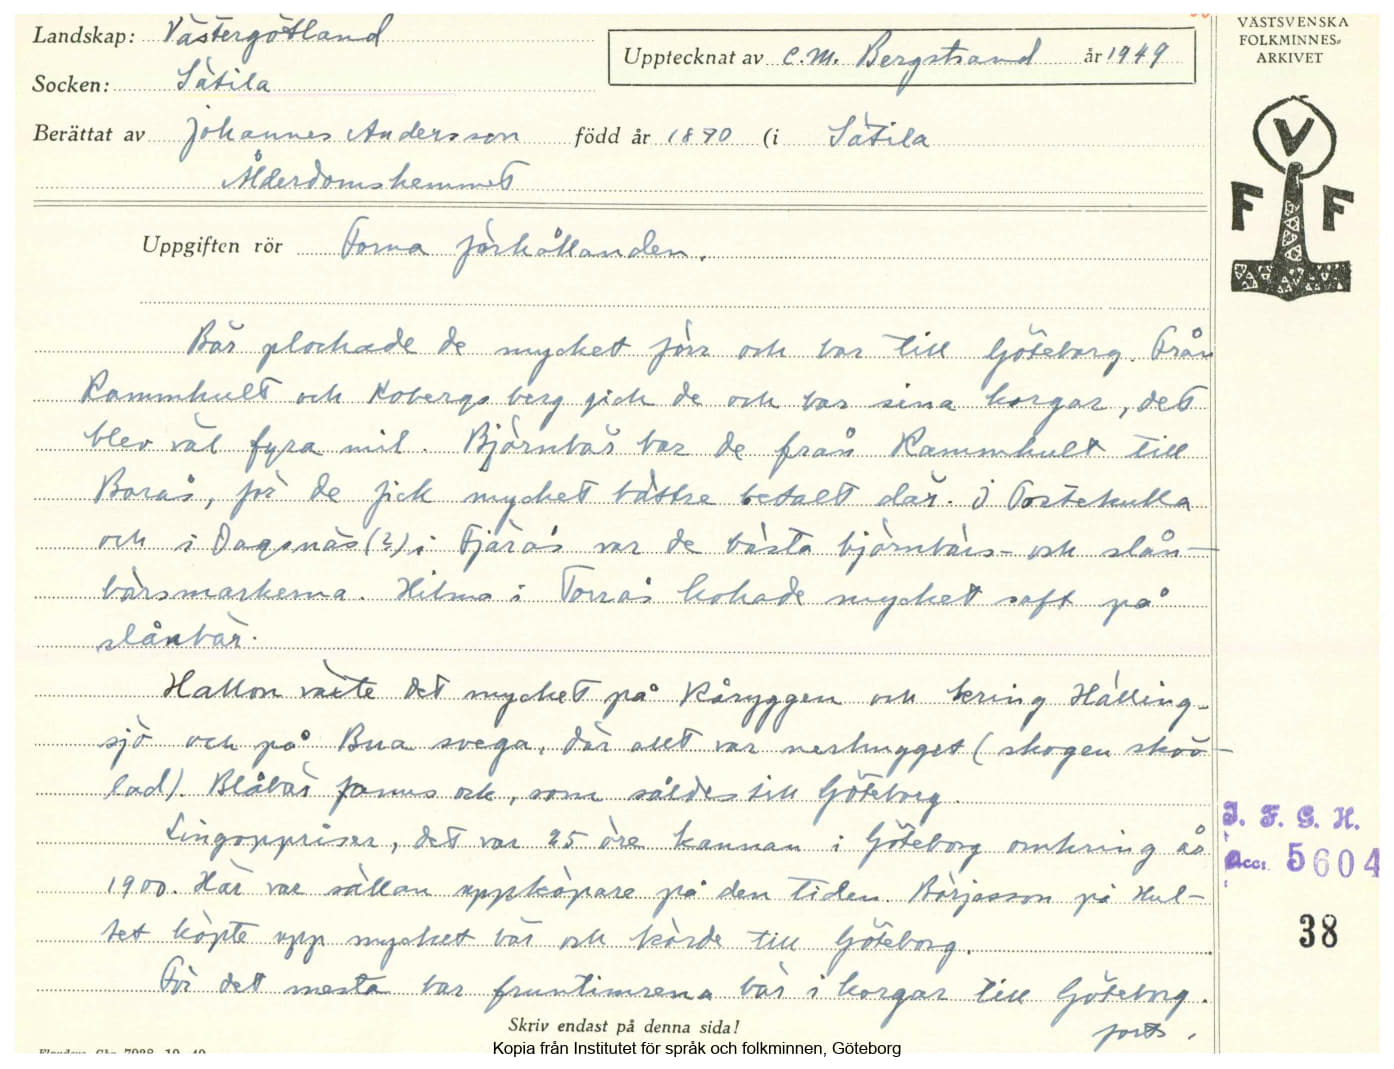 Landskap: Västergötland
Socken: Sätila
Upptecknat av C.M. Bergstrand år 1949
Berättat av Johannes Andersson född år 1870 (i Sätila
Ålderdomshemmet
VÄSTSVENSKA
FOLKMINNES-
ARKIVET
V
F F
Uppgiften rör Forna förhållanden.
Bär plockade de mycket förr och bar till Göteborg. Från
Rammhult och Kobergs berg gick de och bar sina korgar, det
blev väl fyra mil. Björnbär bar de från Rammhult till
Borås, för de fick mycket bättre betalt där. I Postekulla
och i Dagsnäs (?) i Fjärås var de bästa björnbärs- och slån-
bärsmarkerna. Hilma i Torrås kokade mycket saft på
slånbär.
Hallon växte det mycket på Råryggen och kring Hälling-
sjö och på Bua svega, där allt var nerhugget (skogen sköv-
lad). Blåbär fanns ock, som såldes till Göteborg.
Lingonpriser, det var 25 öre kannan i Göteborg omkring år
1900. Här var sällan uppköpare på den tiden. Börjesson på Hul-
tet köpte upp mycket bär och körde till Göteborg.
För det mesta bar fruntimrena bär i korgar till Göteborg.
forts.
I. F. G. H.
Acc. 5604
38
Skriv endast på denna sida!
Kopia från Institutet för språk och folkminnen, Göteborg